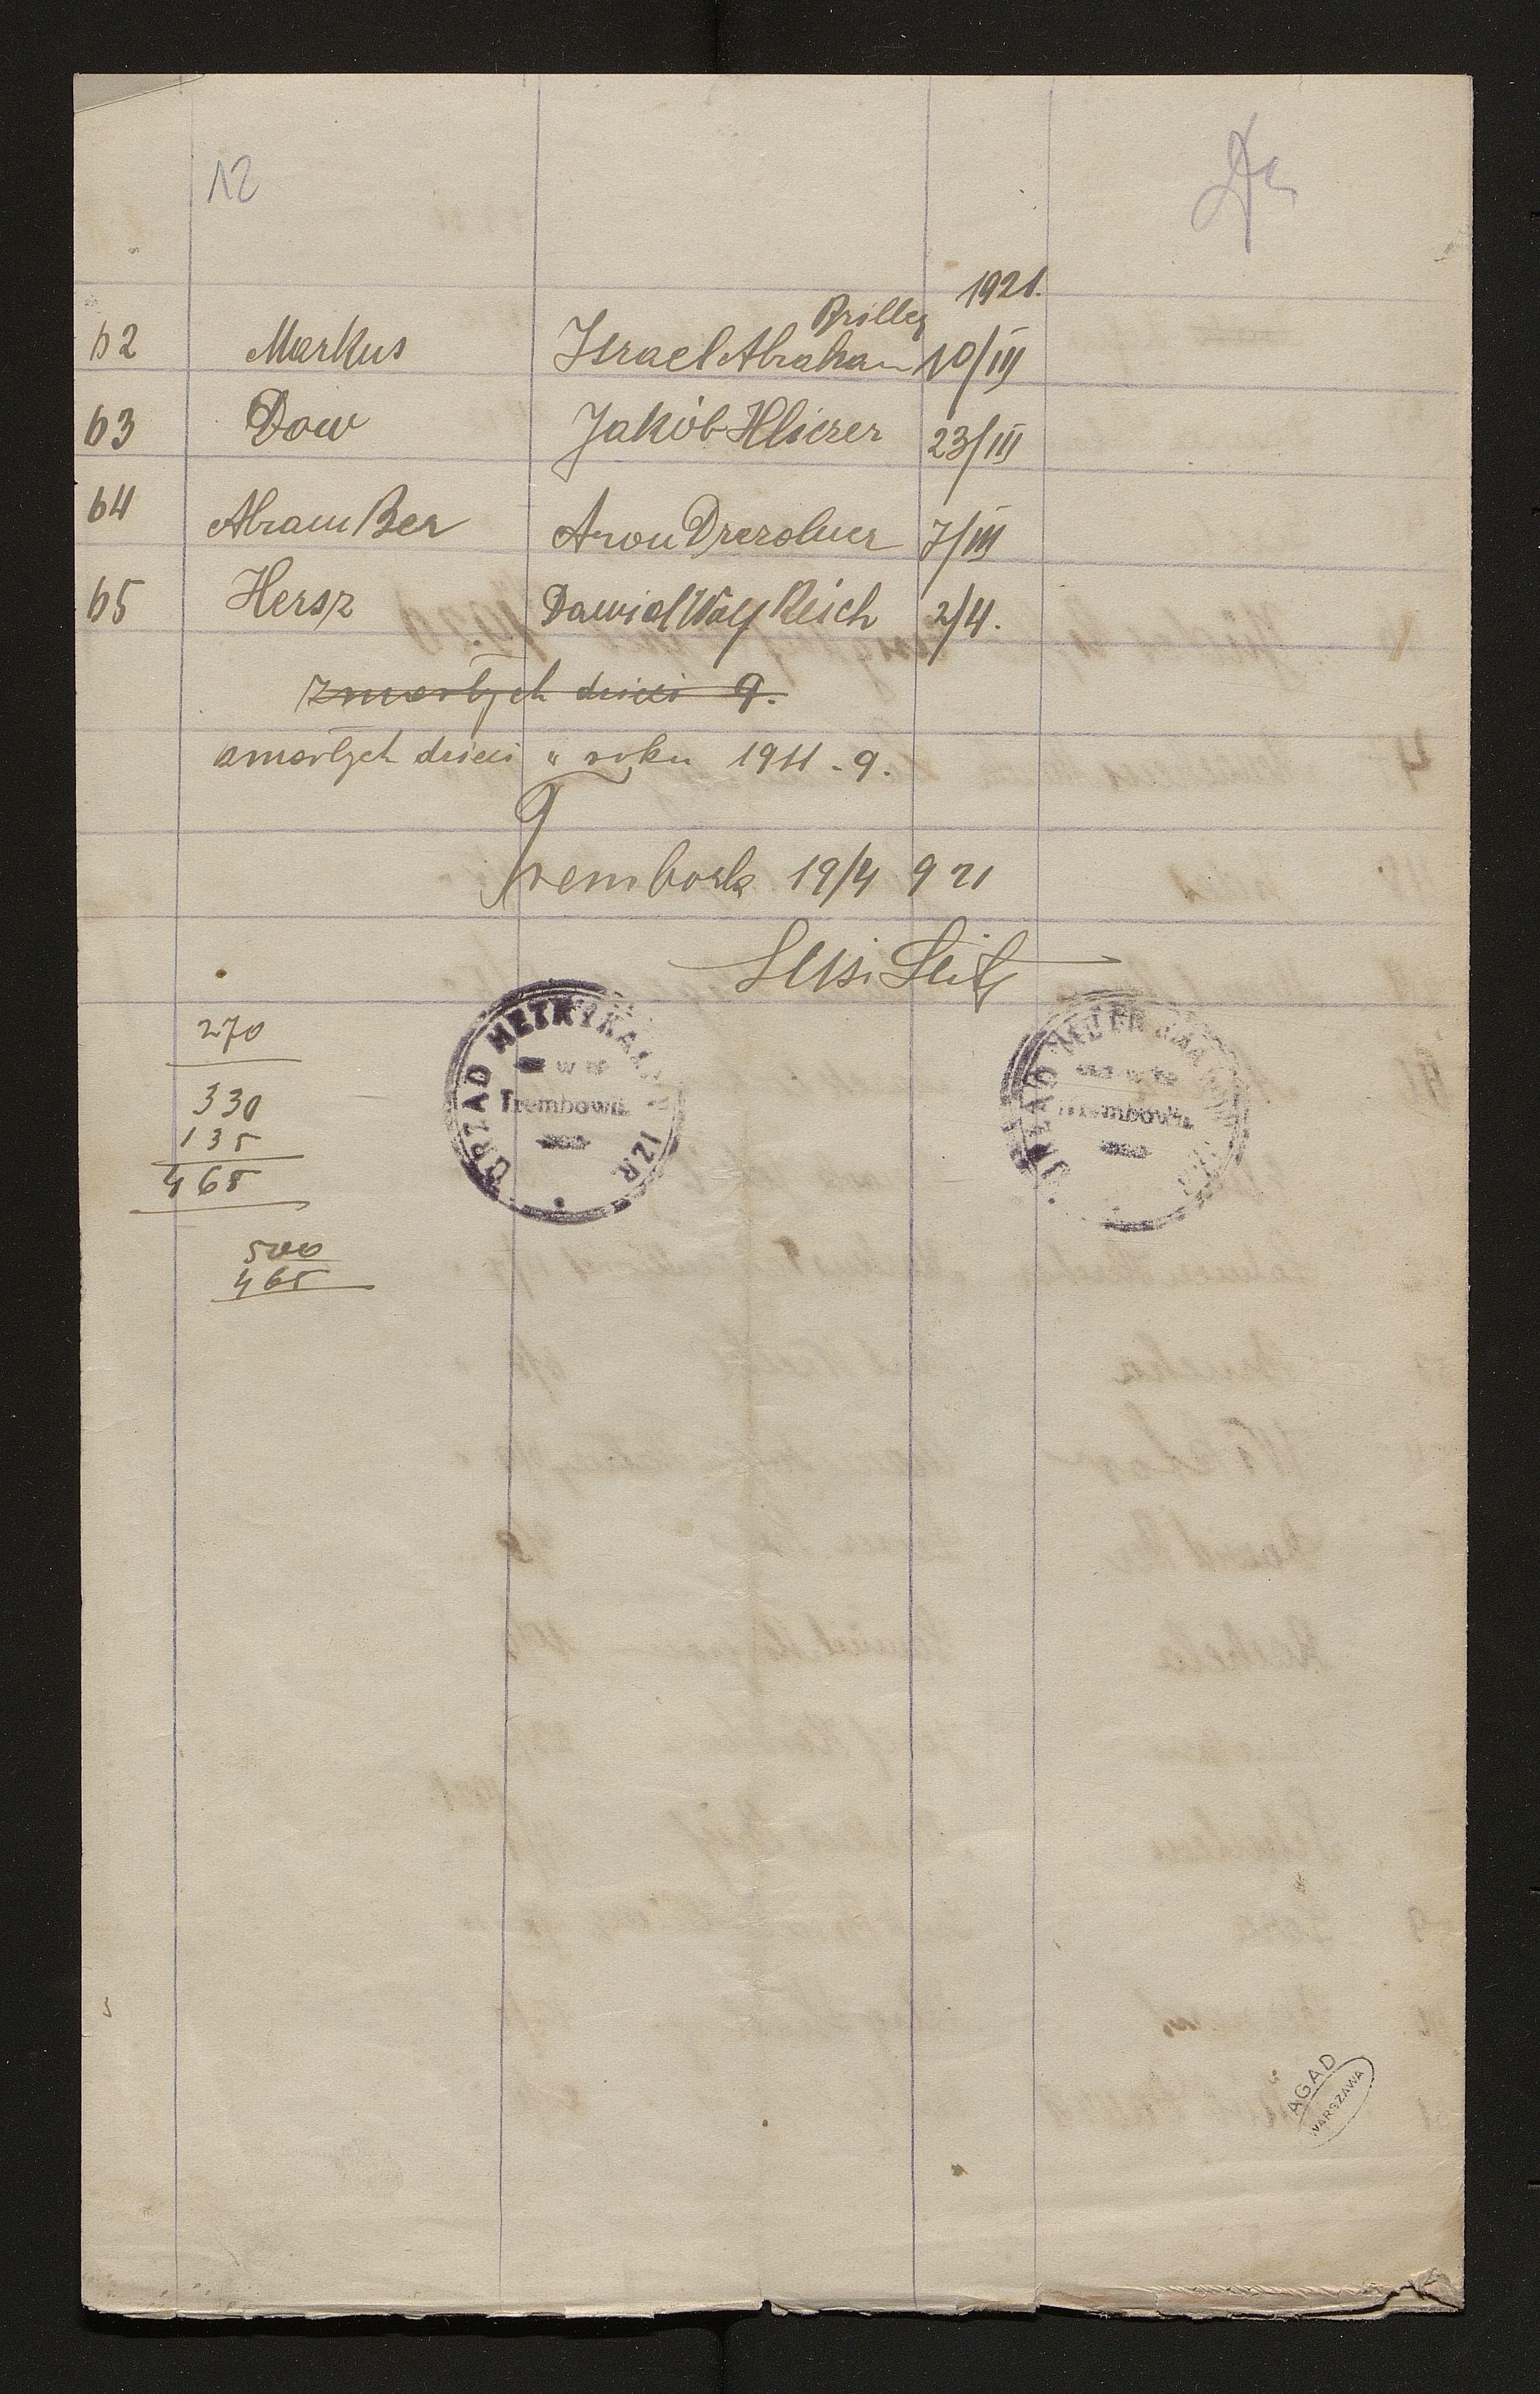 12
1921.
Briller
62 Markus Israel Abraham 10/III
63 Dow Jakób 23/III
64 Abram Ber Aron 7/III
65 Hersz Dawid Wolf Reich 2/4.
zmarłych dzieci 9.
zmarłych dzieci w roku 1911 - 9.
Trembowla 19/4 921
270
330
135
465
500
465
URZĄD METRYKALNY IZR
w
Trembowli
URZĄD METRYKALNY
w
Trembowli
AGAD
WARSZAWA